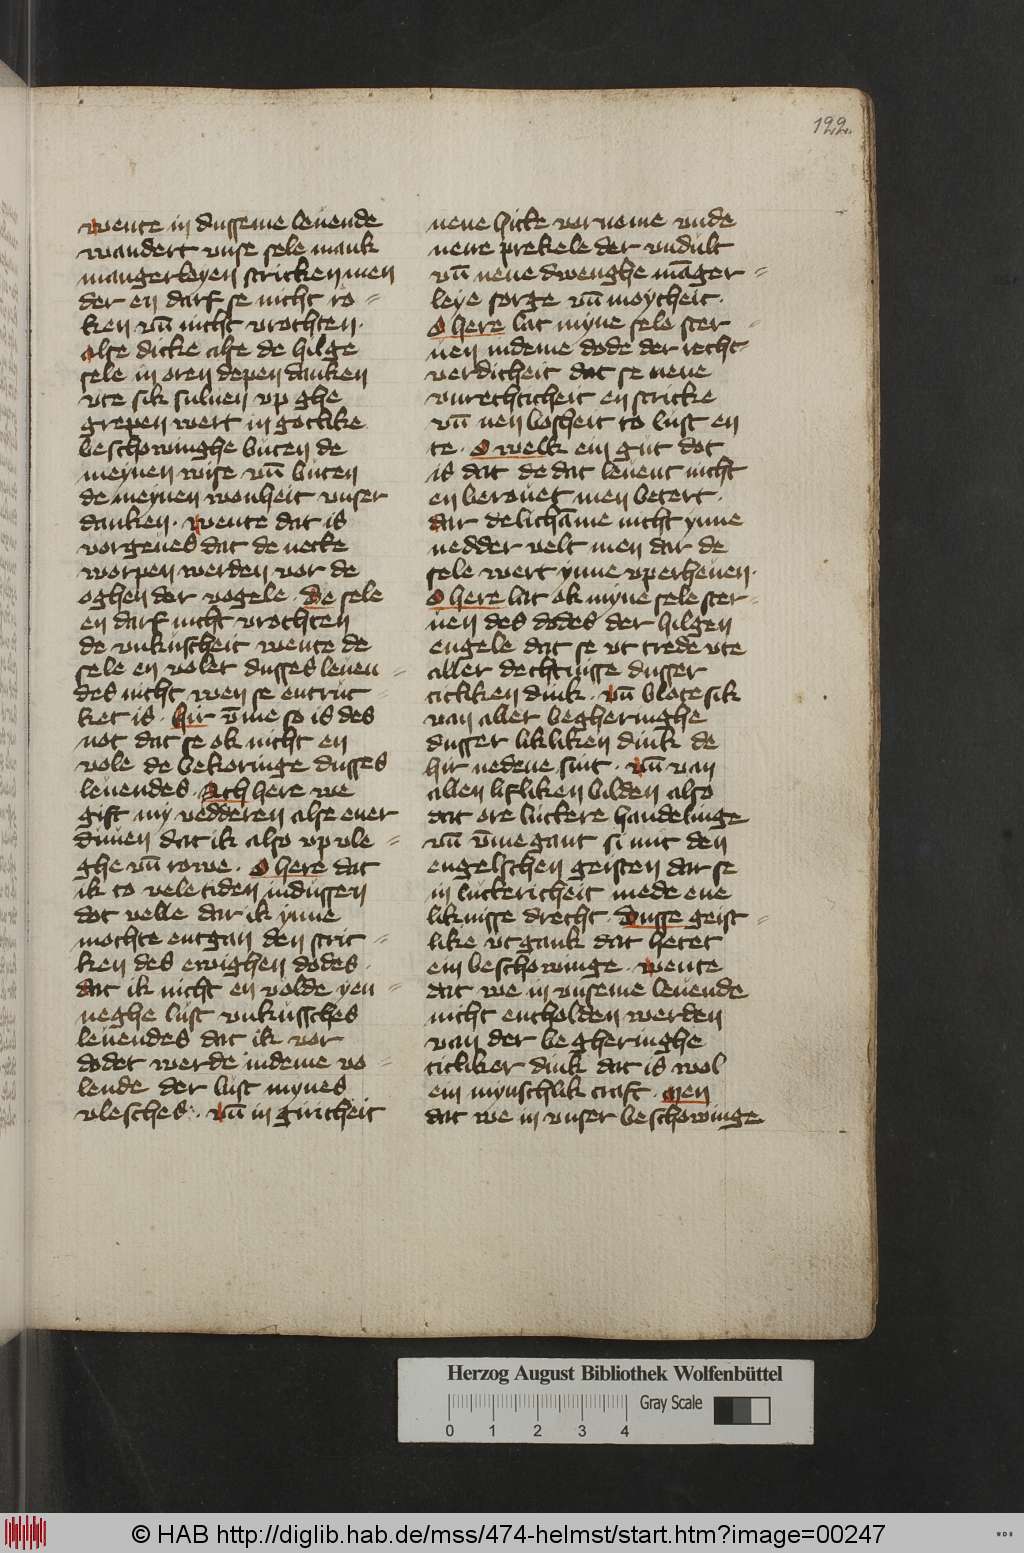 122.
wente in dusseme leuende
wandert vnse sele mank
mangerleyen stricken men
der en darf se nicht ro =
ken vn̄ nicht vrochten ·
alse dicke alse de hilge
sele in oren depen danken
vte sik suluen vp ghe
grepen wert in gotlike
beschowinghe buten de
meynen wise vn̄ buten
de meynen wonheit vnser
danken · wente dat is
vorgeues dat de necke
worpen werden vor de
oghen der vogele · De sele
en darf nicht vrochten
de vnkuscheit wente de
sele en volet dusses leuen =
des nicht wen se entruc =
ket is · hir v̄me so is des
not dat se ok nicht en
vole de bekoringe dusses
leuendes · Ach here we
gift my vedderen alse ener
duuen dat ik also vp vle =
ghe vn̄ rowe · O here dat
ik to vele tiden in dussen
dot velle dar ik ynne
mochte entgan den stric =
ken des ewighen dodes ·
dat ik nicht en volde yen =
neghe lust vnkussches
leuendes dat ik vor
dodet werde in deme vo =
lende der lust mynes
vlesches · vn̄ in giricheit
nene hicke vorneme vnde
nene prekele der vndult
vn̄ nene dwenghe mā̄ger =
leye sorge vn̄ moycheit ·
O here lat myne sele ster =
uen in deme dode der recht
verdicheit dat se nene
vnrechticheit en stricke
vn̄ nen bosheit to lust en
te · O welk ein gut dot
is dat de dat leuent nicht
en berouet men betert ·
dar de lichāme nicht ynne
nedder velt men dar de
sele wert ynne vperheuen ·
O here lat ok myne sele ster =
uen des dodes der hilgen
engele dat se vt trede vte
aller dechtnisse dusser
titliken dink · vn̄ blote sik
van aller begheringhe
dusser likliken dink de
hir nedene sint · vn̄ van
allen lifliken bilden also
dat ore luckere handelinge
vn̄ v̄megant si mit den
engelschen geisten dar se
in luttericheit mede ene
liknisse drecht · Dusse geist =
like vtgank dat hetet
ein beschowinge · wente
dat we in vnseme leuende
nicht entholden werden
van der begheringhe
titliker dink dat is wol
ein mynschlik craft · Men
dat we in vnser beschowinge
Herzog August Bibliothek Wolfenbüttel
Gray Scale
0 1 2 3 4
© HAB http://diglib.hab.de/mss/474-helmst/start.htm?image=00247